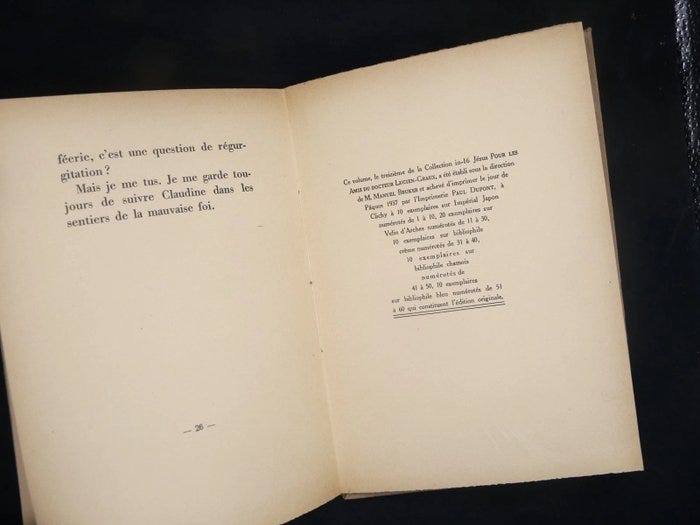 féerie, c'est une question de régur-
gitation ?
Mais je me tus. Je me garde tou-
jours de suivre Claudine dans les
sentiers de la mauvaise foi.
— 26 —
Ce volume, le treizième de la Collection in-16 Jésus POUR LES
AMIS DU DOCTEUR LUCIEN-GRAUX, a été établi sous la direction
de M. MANUEL BRUKER et achevé d'imprimer le jour de
Pâques 1937 par l'Imprimerie PAUL DUPONT, à
Clichy à 10 exemplaires sur Impérial Japon
numérotés de 1 à 10, 20 exemplaires sur
Velin d'Arches numérotés de 11 à 30,
10 exemplaires sur bibliophile
crème numérotés de 31 à 40,
10 exemplaires sur
bibliophile chamois
numérotés de
41 à 50, 10 exemplaires
sur bibliophile bleu numérotés de 51
à 60 qui constituent l'édition originale.